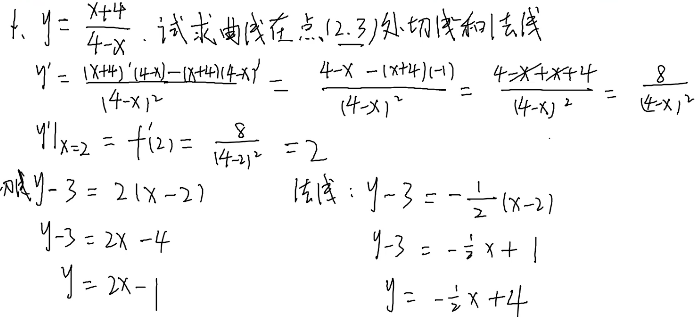 1. y = \frac{x+4}{4-x} . 试求曲线在点(2.3)处切线和法线
y' = \frac{(x+4)'(4-x)-(x+4)(4-x)'}{(4-x)^2} = \frac{4-x-(x+4)(-1)}{(4-x)^2} = \frac{4-x+x+4}{(4-x)^2} = \frac{8}{(4-x)^2}
y'|_{x=2} = f'(2) = \frac{8}{(4-2)^2} = 2
切线 y-3 = 2(x-2)
y-3 = 2x-4
y = 2x-1
法线: y-3 = -\frac{1}{2}(x-2)
y-3 = -\frac{1}{2}x+1
y = -\frac{1}{2}x+4